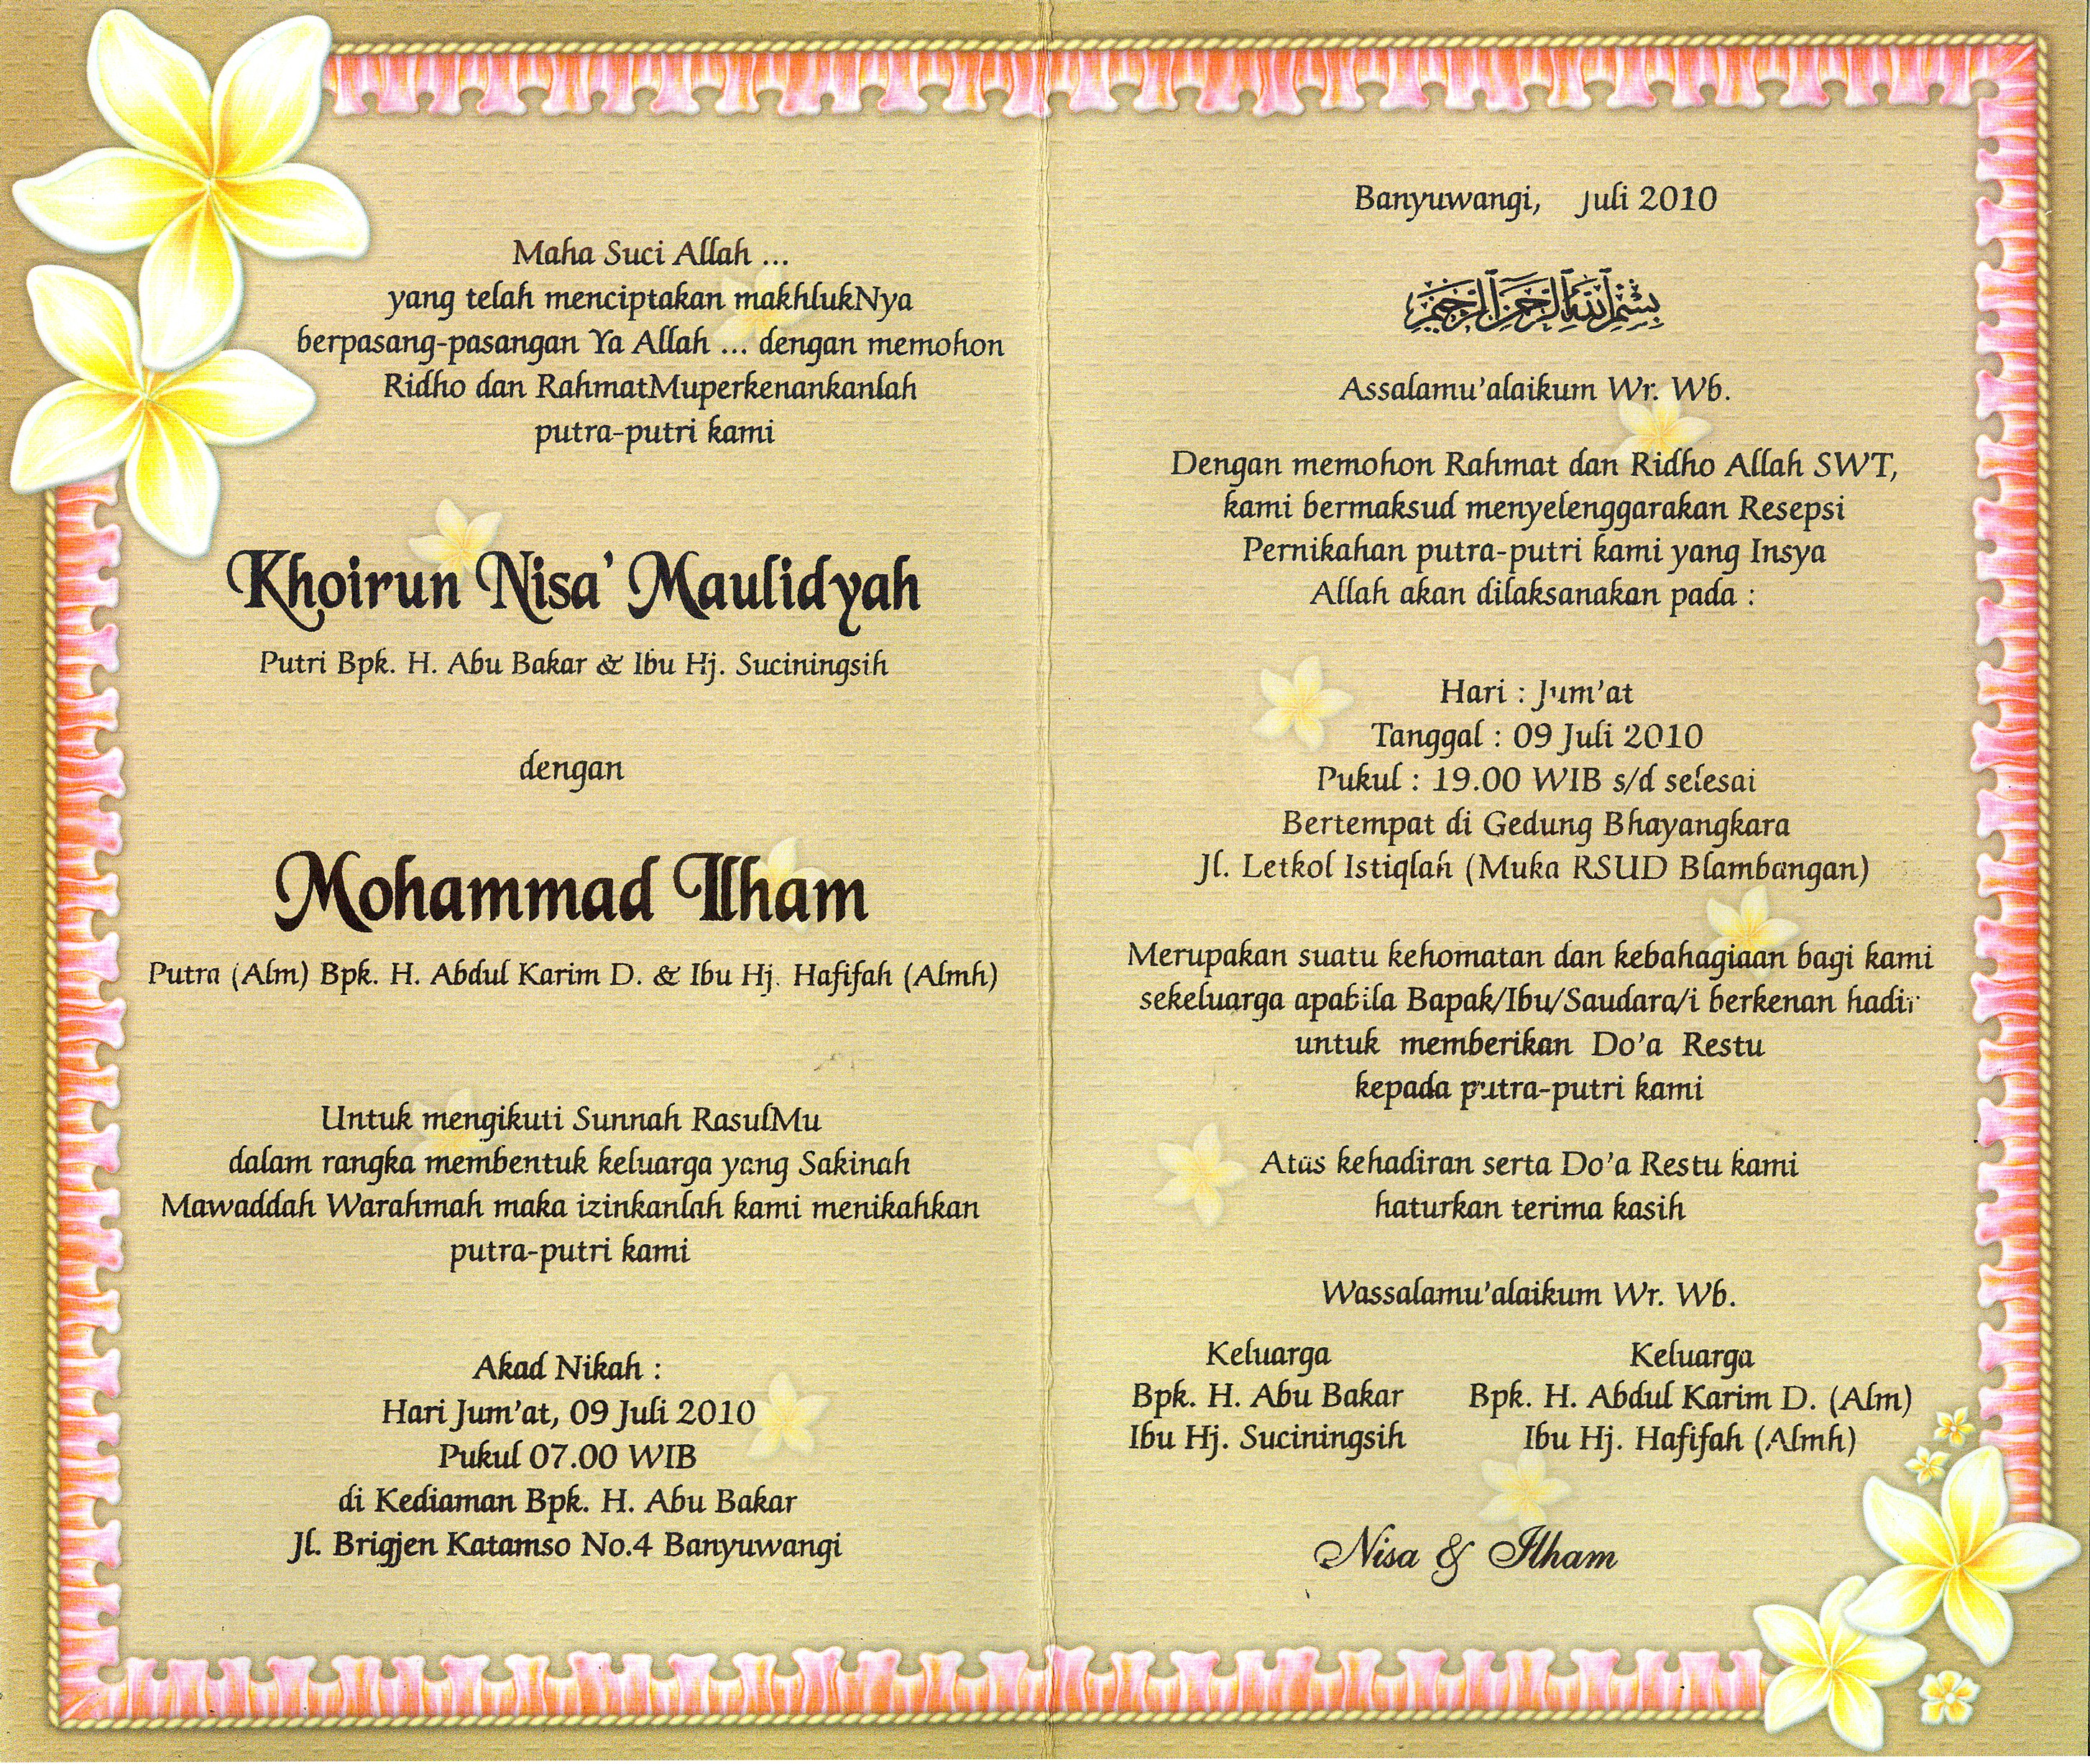 Maha Suci Allah ...
yang telah menciptakan makhlukNya
berpasang-pasangan Ya Allah ... dengan memohon
Ridho dan RahmatMuperkenankanlah
putra-putri kami
Khoirun Nisa' Maulidyah
Putri Bpk. H. Abu Bakar & Ibu Hj. Suciningsih
dengan
Mohammad Ilham
Putra (Alm) Bpk. H. Abdul Karim D. & Ibu Hj. Hafifah (Almh)
Untuk mengikuti Sunnah RasulMu
dalam rangka membentuk keluarga yang Sakinah
Mawaddah Warahmah maka izinkanlah kami menikahkan
putra-putri kami
Akad Nikah :
Hari Jum'at, 09 Juli 2010
Pukul 07.00 WIB
di Kediaman Bpk. H. Abu Bakar
Jl. Brigjen Katamso No.4 Banyuwangi
Banyuwangi, Juli 2010
بسم الله الرحمن الرحيم
Assalamu'alaikum Wr. Wb.
Dengan memohon Rahmat dan Ridho Allah SWT,
kami bermaksud menyelenggarakan Resepsi
Pernikahan putra-putri kami yang Insya
Allah akan dilaksanakan pada :
Hari : Jum'at
Tanggal : 09 Juli 2010
Pukul : 19.00 WIB s/d selesai
Bertempat di Gedung Bhayangkara
Jl. Letkol Istiqlah (Muka RSUD Blambangan)
Merupakan suatu kehomatan dan kebahagiaan bagi kami
sekeluarga apabila Bapak/Ibu/Saudara/i berkenan hadir
untuk memberikan Do'a Restu
kepada putra-putri kami
Atas kehadiran serta Do'a Restu kami
haturkan terima kasih
Wassalamu'alaikum Wr. Wb.
Keluarga
Bpk. H. Abu Bakar
Ibu Hj. Suciningsih
Keluarga
Bpk. H. Abdul Karim D. (Alm)
Ibu Hj. Hafifah (Almh)
Nisa & Ilham